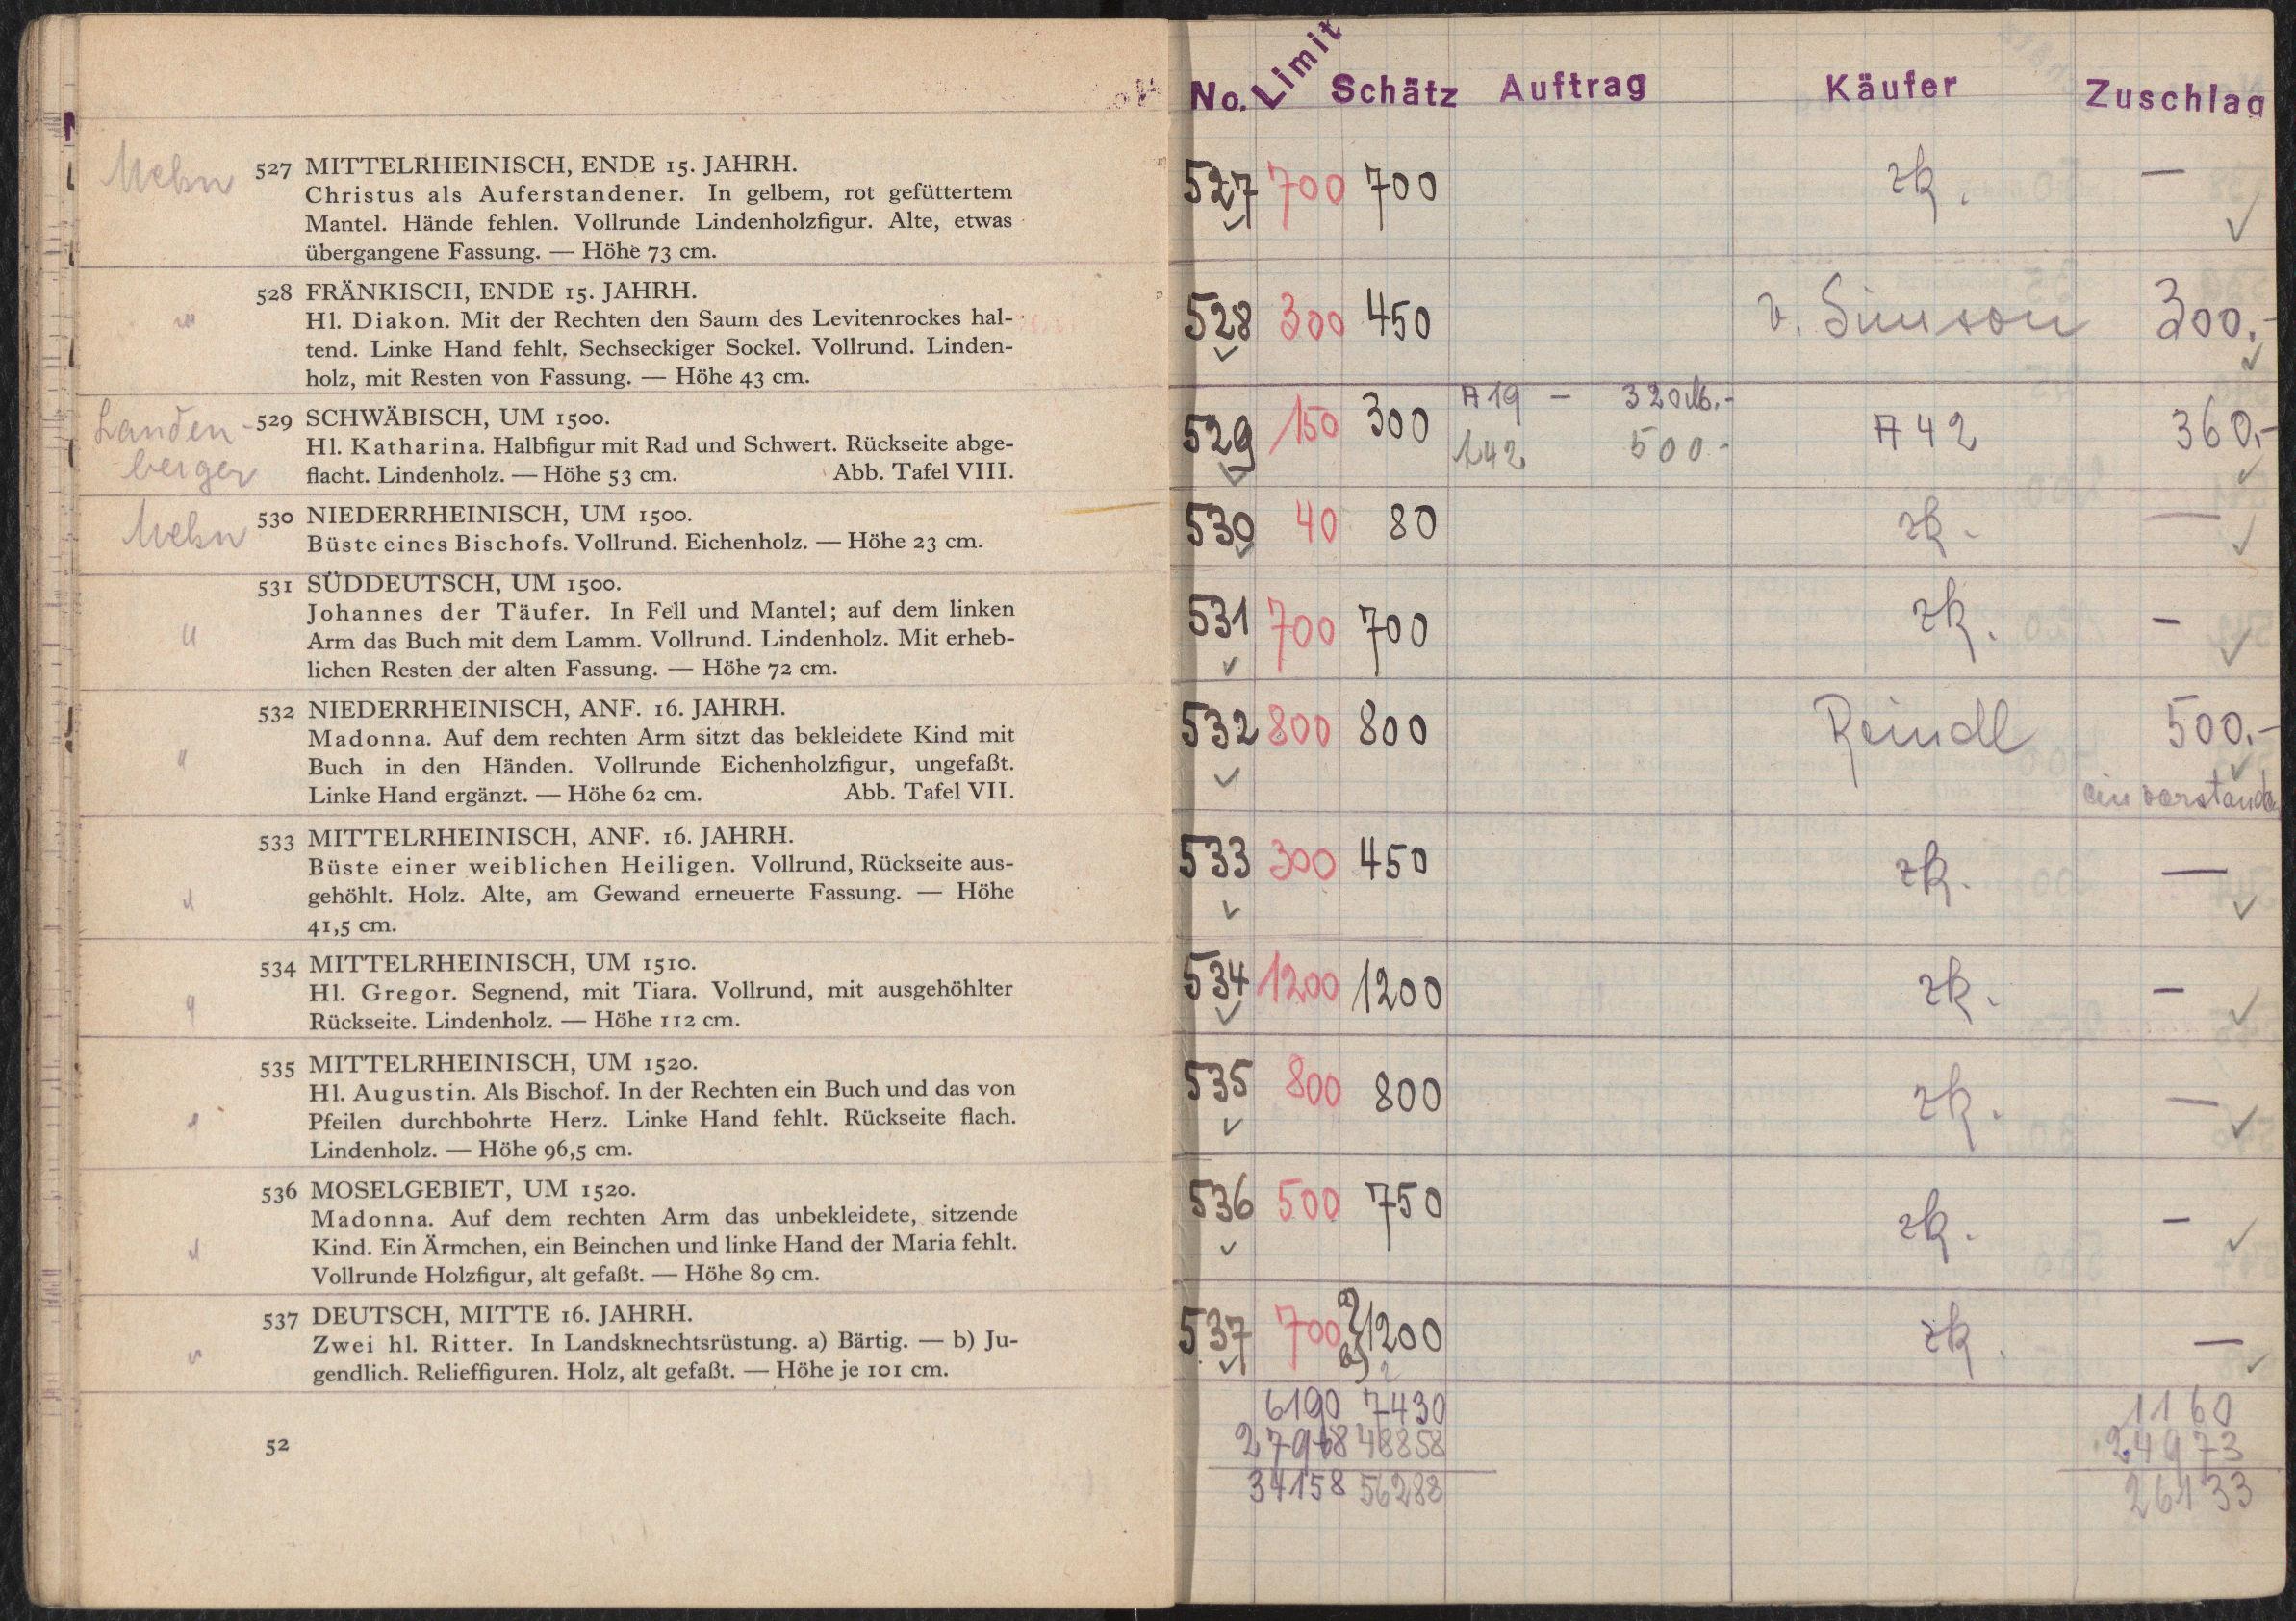 Mehn
527 MITTELRHEINISCH, ENDE 15. JAHRH.
Christus als Auferstandener. In gelbem, rot gefüttertem
Mantel. Hände fehlen. Vollrunde Lindenholzfigur. Alte, etwas
übergangene Fassung. — Höhe 73 cm.
"
528 FRÄNKISCH, ENDE 15. JAHRH.
Hl. Diakon. Mit der Rechten den Saum des Levitenrockes hal-
tend. Linke Hand fehlt. Sechseckiger Sockel. Vollrund. Linden-
holz, mit Resten von Fassung. — Höhe 43 cm.
Landen-
berger
529 SCHWÄBISCH, UM 1500.
Hl. Katharina. Halbfigur mit Rad und Schwert. Rückseite abge-
flacht. Lindenholz. — Höhe 53 cm. Abb. Tafel VIII.
Mehn
530 NIEDERRHEINISCH, UM 1500.
Büste eines Bischofs. Vollrund. Eichenholz. — Höhe 23 cm.
"
531 SÜDDEUTSCH, UM 1500.
Johannes der Täufer. In Fell und Mantel; auf dem linken
Arm das Buch mit dem Lamm. Vollrund. Lindenholz. Mit erheb-
lichen Resten der alten Fassung. — Höhe 72 cm.
"
532 NIEDERRHEINISCH, ANF. 16. JAHRH.
Madonna. Auf dem rechten Arm sitzt das bekleidete Kind mit
Buch in den Händen. Vollrunde Eichenholzfigur, ungefaßt.
Linke Hand ergänzt. — Höhe 62 cm. Abb. Tafel VII.
"
533 MITTELRHEINISCH, ANF. 16. JAHRH.
Büste einer weiblichen Heiligen. Vollrund, Rückseite aus-
gehöhlt. Holz. Alte, am Gewand erneuerte Fassung. — Höhe
41,5 cm.
"
534 MITTELRHEINISCH, UM 1510.
Hl. Gregor. Segnend, mit Tiara. Vollrund, mit ausgehöhlter
Rückseite. Lindenholz. — Höhe 112 cm.
"
535 MITTELRHEINISCH, UM 1520.
Hl. Augustin. Als Bischof. In der Rechten ein Buch und das von
Pfeilen durchbohrte Herz. Linke Hand fehlt. Rückseite flach.
Lindenholz. — Höhe 96,5 cm.
"
536 MOSELGEBIET, UM 1520.
Madonna. Auf dem rechten Arm das unbekleidete, sitzende
Kind. Ein Ärmchen, ein Beinchen und linke Hand der Maria fehlt.
Vollrunde Holzfigur, alt gefaßt. — Höhe 89 cm.
"
537 DEUTSCH, MITTE 16. JAHRH.
Zwei hl. Ritter. In Landsknechtsrüstung. a) Bärtig. — b) Ju-
gendlich. Relieffiguren. Holz, alt gefaßt. — Höhe je 101 cm.
52
No. Limit Schätz Auftrag Käufer Zuschlag
527 700 700 zk. — ✓
528 300 450 v. Simson 300.- ✓
529 150 300 A 19 — 320 M.- A 42 360.- ✓
142 500.-
530 40 80 zk. — ✓
531 700 700 zk. — ✓
532 800 800 Reindl 500.- ✓
einverstanden
533 300 450 zk. — ✓
534 1200 1200 zk. — ✓
535 800 800 zk. — ✓
536 500 750 zk. — ✓
537 700 a) b) 1200 zk. — ✓
6190 7430 1160
27968 48858 24973
34158 56288 26133